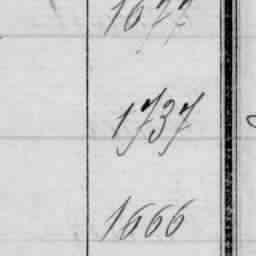 1677
1737
1666